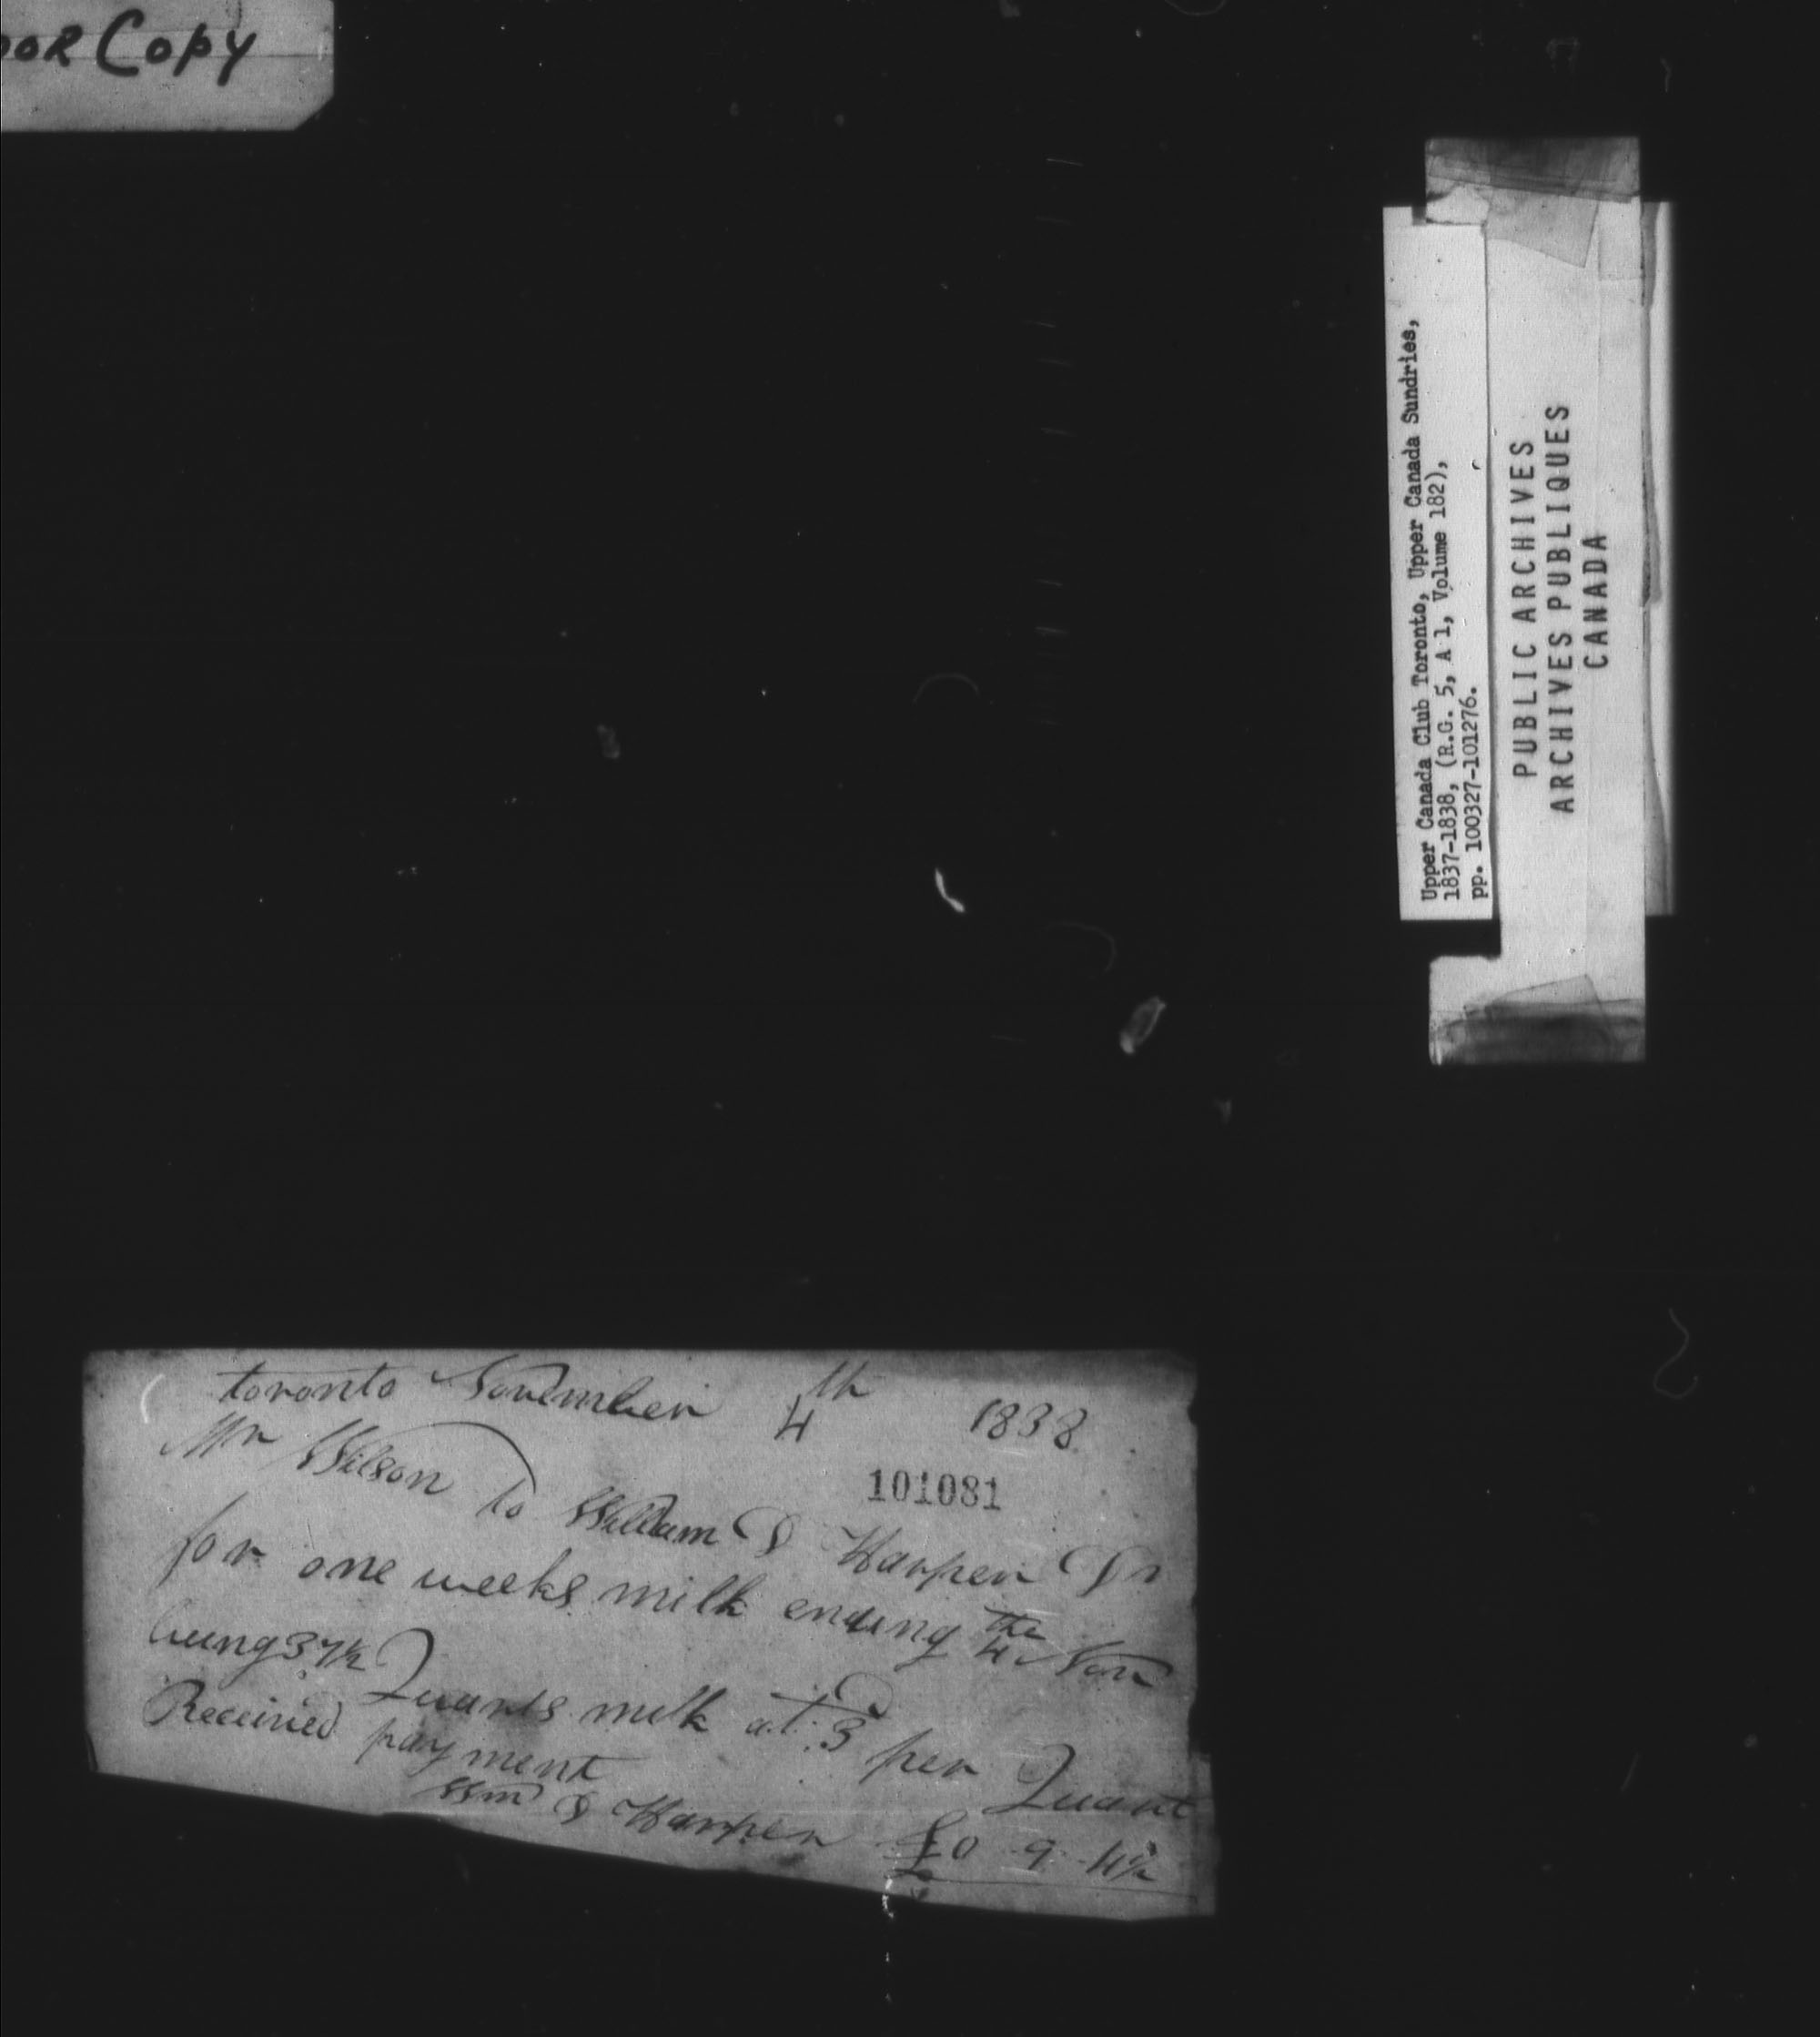 oor Copy
Upper Canada Club Toronto, Upper Canada Sundries,
1837-1838, (R.G. 5, A 1, Volume 182),
pp. 100327-101276.
PUBLIC ARCHIVES
ARCHIVES PUBLIQUES
CANADA
toronto November 4th 1838
101081
Mr Wilson to William D Harper Dr
for one weeks milk ending the 4 Nov
being 37½ Quarts milk at 3d per Quart
Received payment
Wm D Harper £0 9 4½